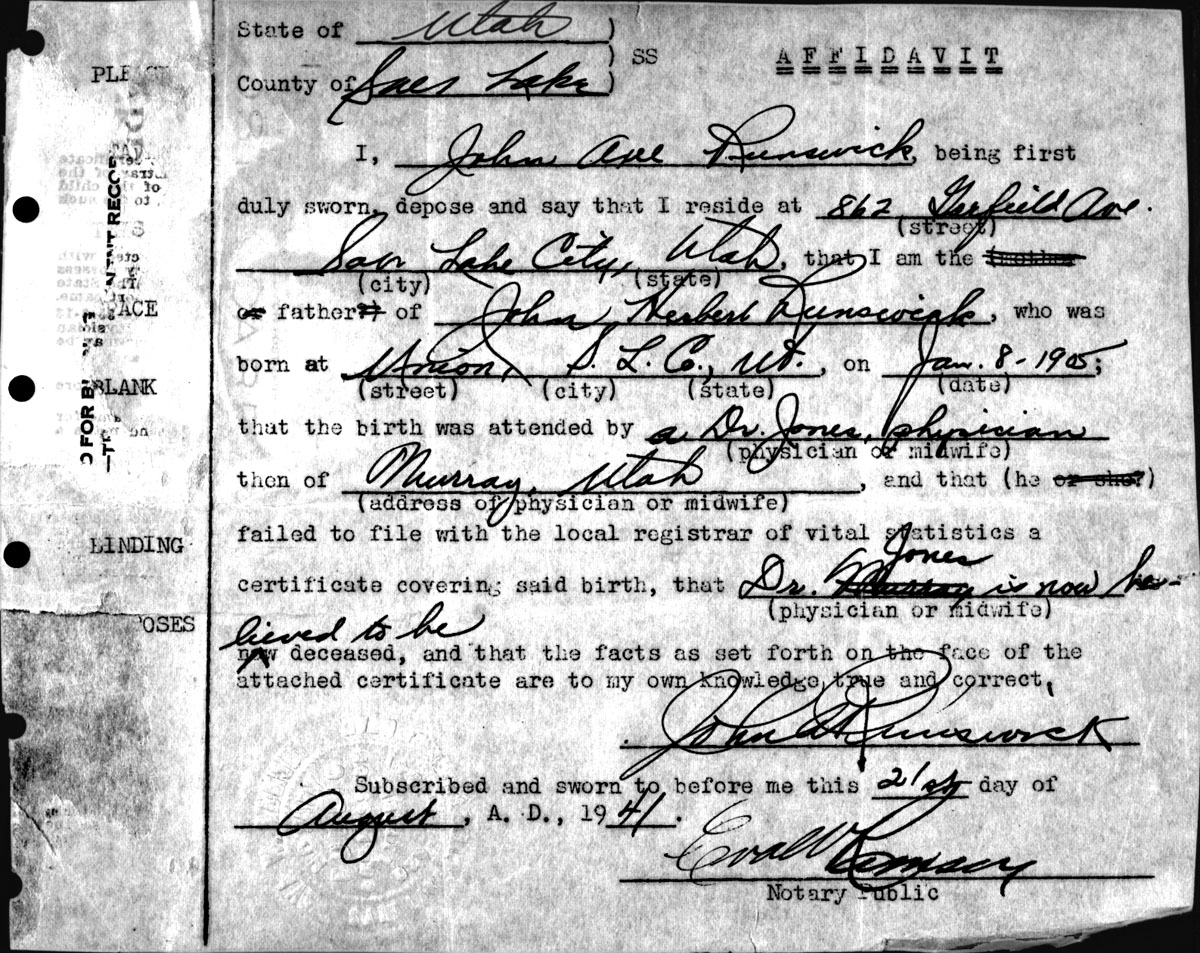 State of Utah )
) SS AFFIDAVIT
County of Salt Lake )
I, John Axe Runswick, being first
duly sworn, depose and say that I reside at 862 Garfield Ave.
(street)
Salt Lake City, Utah, that I am the (mother
(city) (state)
or father) of John Herbert Runswick, who was
born at Union, S. L. Co., Ut. on Jan. 8-1905;
(street) (city) (state) (date)
that the birth was attended by a Dr. Jones, physician
(physician or midwife)
then of Murray, Utah, and that (he or she)
(address of physician or midwife)
failed to file with the local registrar of vital statistics a
Jones
certificate covering said birth, that Dr. Murray is now be-
(physician or midwife)
lieved to be
now deceased, and that the facts as set forth on the face of the
attached certificate are to my own knowledge true and correct.
John A Runswick
Subscribed and sworn to before me this 21st day of
August, A. D., 1941.
Notary Public
BLANK
BINDING
POSES